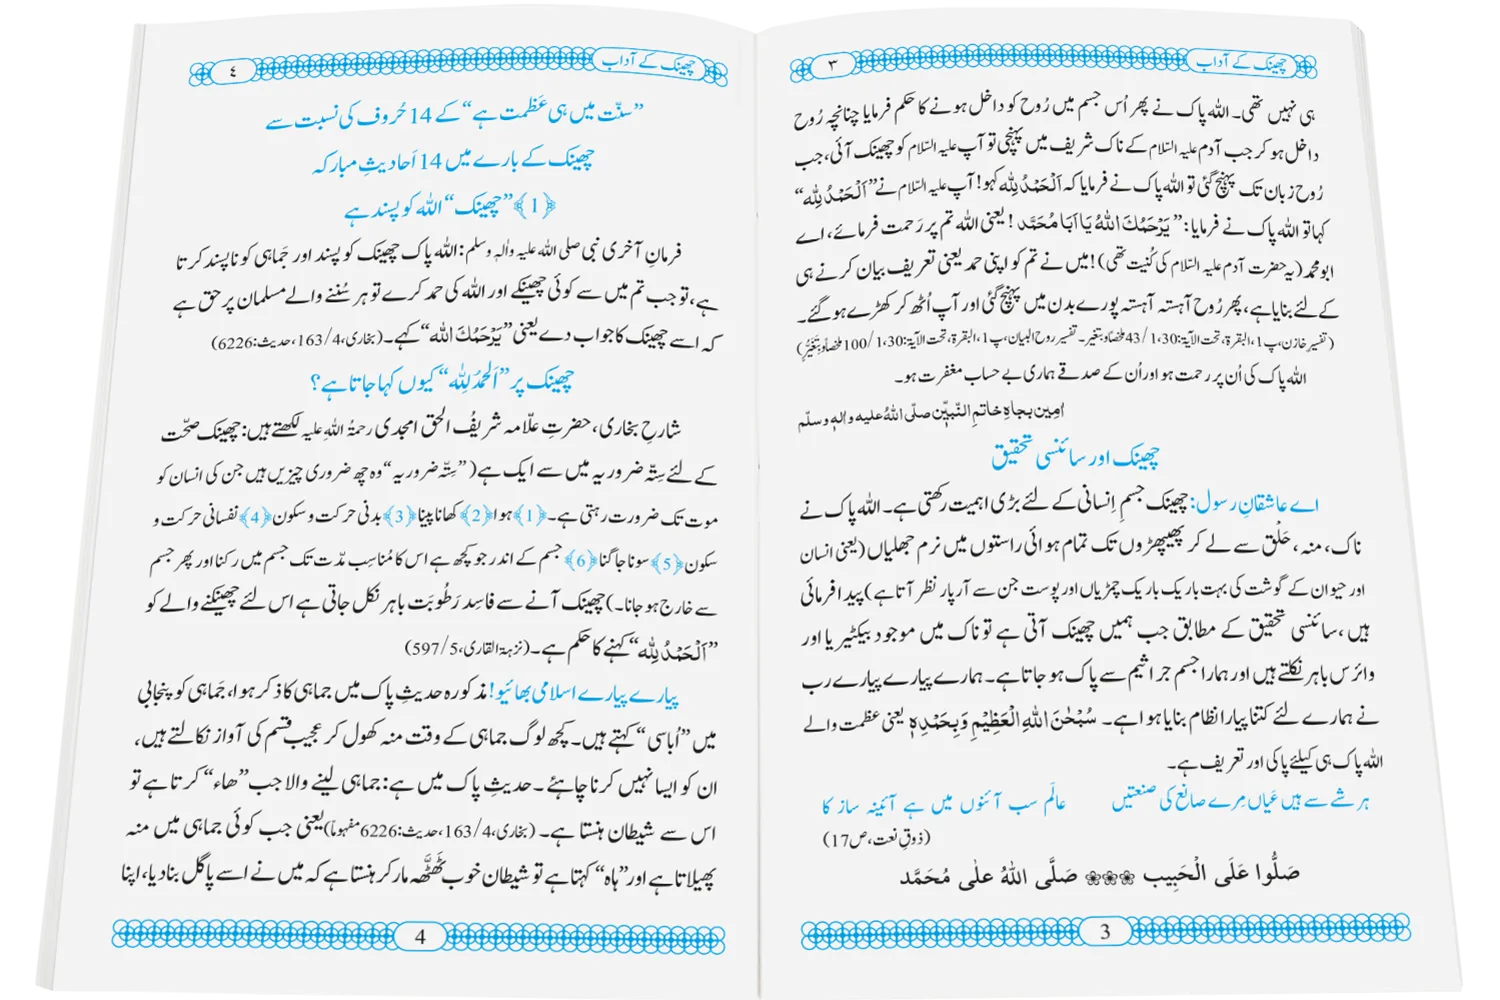 چھینک کے آداب
۳
ہی نہیں تھی۔ اللہ پاک نے پھر اُس جسم میں رُوح کو داخل ہونے کا حکم فرمایا چنانچہ رُوح
داخل ہو کر جب آدم علیہ السّلام کے ناک شریف میں پہنچی تو آپ علیہ السّلام کو چھینک آئی، جب
رُوح زبان تک پہنچ گئی تو اللہ پاک نے فرمایا کہ اَلْحَمْدُ لِلّٰہ کہو! آپ علیہ السّلام نے ”اَلْحَمْدُ لِلّٰہ“
کہا تو اللہ پاک نے فرمایا: ”یَرْحَمُکَ اللہُ یَا اَبَا مُحَمَّد ! یعنی اللہ تم پر رَحمت فرمائے، اے
ابو محمد (یہ حضرت آدم علیہ السّلام کی کُنیت تھی)! میں نے تم کو اپنی حمد یعنی تعریف بیان کرنے ہی
کے لئے بنایا ہے، پھر رُوح آہستہ آہستہ پورے بدن میں پہنچ گئی اور آپ اُٹھ کر کھڑے ہو گئے۔
(تفسیرِ خازن، پ1، البقرۃ، تحت الآیۃ:30، 1/43 ملخصاً و بتغیر۔ تفسیر روح البیان، پ1، البقرۃ، تحت الآیۃ:30، 1/100 ملخصاً و بتَغَیُّر)
اللہ پاک کی اُن پر رحمت ہو اور اُن کے صدقے ہماری بے حساب مغفرت ہو۔
اٰمِین بِجاہِ خاتمِ النّبیّٖن صلَّی اللہُ علیہ و اٰلہٖ و سلَّم
چھینک اور سائنسی تحقیق
اے عاشقانِ رسول: چھینک جسمِ اِنسانی کے لئے بڑی اہمیت رکھتی ہے۔ اللہ پاک نے
ناک، منہ، حَلْق سے لے کر پھیپھڑوں تک تمام ہوائی راستوں میں نرم جھلیاں (یعنی انسان
اور حیوان کے گوشت کی بہت باریک باریک چمڑیاں اور پوست جن سے آر پار نظر آتا ہے) پیدا فرمائی
ہیں، سائنسی تحقیق کے مطابق جب ہمیں چھینک آتی ہے تو ناک میں موجود بیکٹیریا اور
وائرس باہر نکلتے ہیں اور ہمارا جسم جراثیم سے پاک ہو جاتا ہے۔ ہمارے پیارے پیارے رب
نے ہمارے لئے کتنا پیارا نظام بنایا ہوا ہے۔ سُبْحٰنَ اللہِ الْعَظِیْمِ وَ بِحَمْدِہٖ یعنی عظمت والے
اللہ پاک ہی کیلئے پاکی اور تعریف ہے۔
ہر شے سے ہیں عَیاں مِرے صانع کی صنعتیں عالَم سب آئنوں میں ہے آئینہ ساز کا
(ذوقِ نعت، ص17)
صَلُّوا عَلَی الْحَبِیب ❀❀❀ صَلَّی اللہُ علٰی مُحَمَّد
3
چھینک کے آداب
٤
”سنّت میں ہی عَظمت ہے“ کے 14 حُروف کی نسبت سے
چھینک کے بارے میں 14 اَحادیثِ مبارکہ
﴿1﴾ ”چھینک“ اللہ کو پسند ہے
فرمانِ آخری نبی صلی اللہ علیہ واٰلہٖ وسلم: اللہ پاک چھینک کو پسند اور جَماہی کو ناپسند کرتا
ہے، تو جب تم میں سے کوئی چھینکے اور اللہ کی حمد کرے تو ہر سُننے والے مسلمان پر حق ہے
کہ اسے چھینک کا جواب دے یعنی ”یَرْحَمُکَ اللہ“ کہے۔ (بخاری، 4/163، حدیث:6226)
چھینک پر ”اَلحمدُ لِلّٰہ“ کیوں کہا جاتا ہے؟
شارحِ بخاری، حضرتِ علّامہ شریفُ الحق امجدی رحمۃُ اللہِ علیہ لکھتے ہیں: چھینک صحّت
کے لئے سِتّہ ضروریہ میں سے ایک ہے (”سِتّہ ضروریہ“ وہ چھ ضروری چیزیں ہیں جن کی انسان کو
موت تک ضرورت رہتی ہے۔ ﴿1﴾ ہوا ﴿2﴾ کھانا پینا ﴿3﴾ بدنی حرکت و سکون ﴿4﴾ نفسانی حرکت و
سکون ﴿5﴾ سونا جاگنا ﴿6﴾ جسم کے اندر جو کچھ ہے اس کا مُناسِب مدّت تک جسم میں رکنا اور پھر جسم
سے خارج ہو جانا۔) چھینک آنے سے فاسِد رَطُوبَت باہر نکل جاتی ہے اس لئے چھینکنے والے کو
”اَلْحَمْدُ لِلّٰہ“ کہنے کا حکم ہے۔ (نزہۃ القاری، 5/597)
پیارے پیارے اسلامی بھائیو! مذکورہ حدیثِ پاک میں جماہی کا ذکر ہوا، جَماہی کو پنجابی
میں ”اُباسی“ کہتے ہیں۔ کچھ لوگ جماہی کے وقت منہ کھول کر عجیب قسم کی آواز نکالتے ہیں،
ان کو ایسا نہیں کرنا چاہئے۔ حدیثِ پاک میں ہے: جماہی لینے والا جب ”ھاء“ کرتا ہے تو
اس سے شیطان ہنستا ہے۔ (بخاری، 4/163، حدیث:6226 مفہوماً) یعنی جب کوئی جماہی میں منہ
پھیلاتا ہے اور ”ہاہ“ کہتا ہے تو شیطان خوب ٹَھٹَّھہ مار کر ہنستا ہے کہ میں نے اسے پاگل بنا دیا، اپنا
4